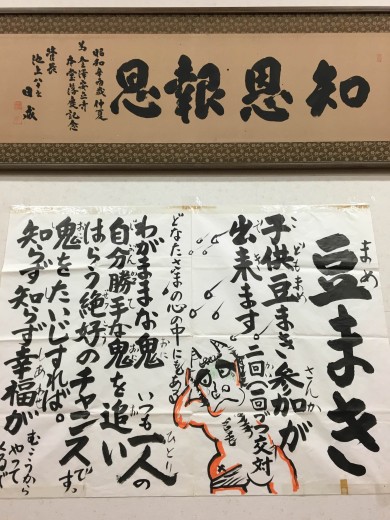 知恩報恩
昭和辛酉歳仲夏
本堂落慶記念
管長
豆まき
子供豆まき参加が
出来ます。二回(一回づつ交対)
どなたさまの心の中にもある
わがままな鬼 いつも一人の
自分勝手な鬼を追い
はらう絶好のチャンスです
鬼をたいじすれば。
知らず知らず幸福が むこうからやってくる